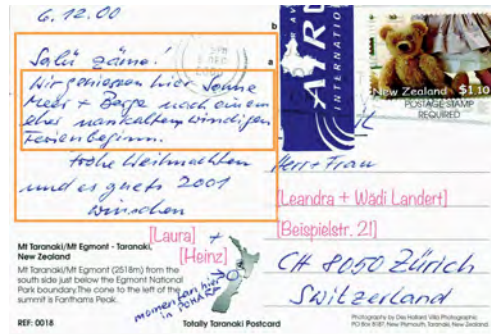 6.12.00
b
a
Salü zäme!
Wir geniessen hier Sonne
Meer + Berge nach einem
eher nasskalten, windigen
Ferienbeginn.
Frohe Weihnachten
und es guets 2001
wünschen
[Laura] +
[Heinz]
Mt Taranaki/Mt Egmont - Taranaki,
New Zealand
Mt Taranaki/Mt Egmont (2518m) from the
south side just below the Egmont National
Park boundary. The cone to the left of the
summit is Fanthams Peak.
momentan hier
in
REF: 0018
Totally Taranaki Postcard
AIR
INTERNATIO
New Zealand $1.10
POSTAGE STAMP
REQUIRED
Herr + Frau
[Leandra + Wädi Landert]
[Beispielstr. 21]
CH 8050 Zürich
Switzerland
Photography by Des Hollard Villa Photographic
PO Box 8187, New Plymouth, Taranaki, New Zealand.